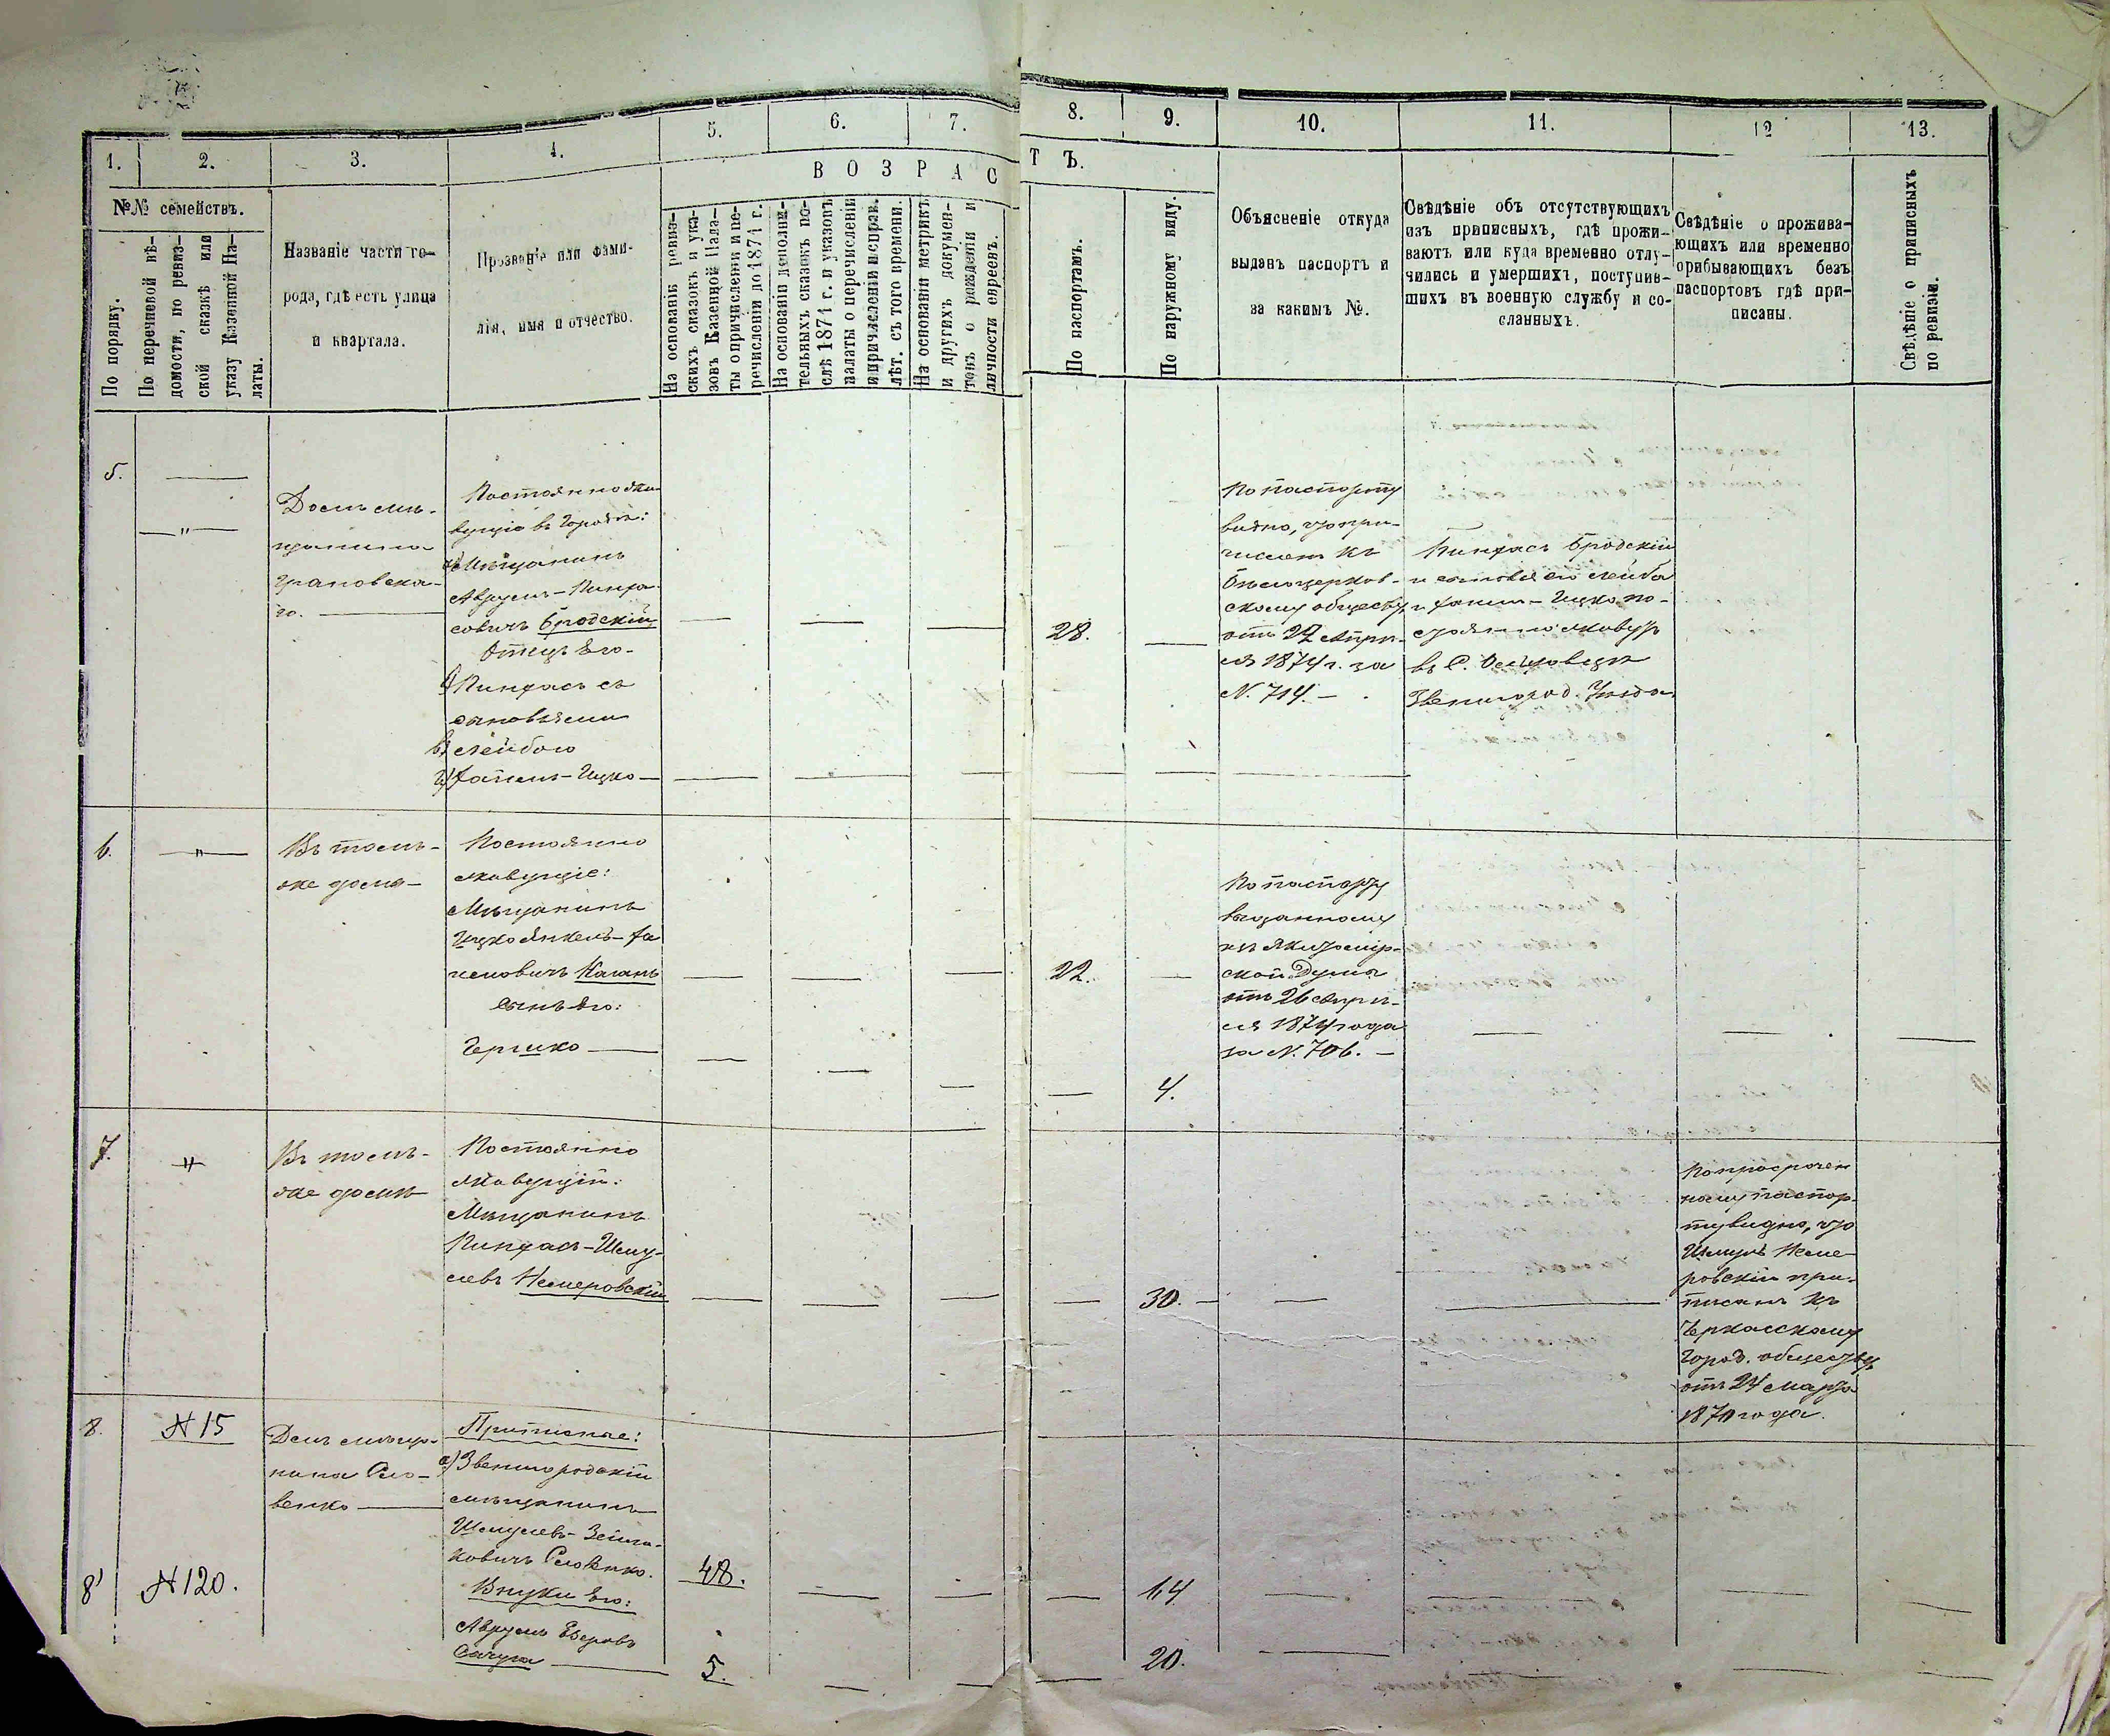 1.
2.
3.
4.
5.
6.
7.
8.
9.
10.
11.
12
13.
В О З Р А С
Т Ъ.
№№ семействъ.
По порядку.
По перечневой вѣ-
домости, по ревиз-
ской сказкѣ или
указу Казенной Па-
латы.
Названіе части го-
рода, гдѣ есть улица
и квартала.
Прозваніе или фами-
лія, имя и отчество.
На основаніи ревиз-
скихъ сказокъ и ука-
зовъ Казенной Пала-
ты о причисленіи и пе-
речисленіи до 1871 г.
На основаніи дополни-
тельныхъ сказокъ по-
слѣ 1871 г. и указовъ
палаты о перечисленіи
и причисленіи исправ.
лѣт. съ того времени.
На основаніи метрикъ
и другихъ докумен-
товъ о рожденіи и
личности евреевъ.
По паспортамъ.
По наружному виду.
Объясненіе откуда
выданъ паспортъ и
за какимъ №.
Свѣдѣніе объ отсутствующихъ
изъ приписныхъ, гдѣ прожи-
ваютъ или куда временно отлу-
чились и умершихъ, поступив-
шихъ въ военную службу и со-
сланныхъ.
Свѣдѣніе о прожива-
ющихъ или временно
прибывающихъ безъ
паспортовъ гдѣ при-
писаны.
Свѣдѣніе о приписныхъ
по ревизіи.
5.
Домъ мѣ-
щанина
Грановска-
го.
Постоянно жи-
вущіе въ городѣ:
а) Мѣщанинъ
Аврумъ-Пинха-
совичъ Бродскій
Отецъ его
б) Пинхасъ съ
сыновьями
в) Лейбою
г) Хаимъ-Ицко
28.
По паспорту
видно, что при-
численъ къ
Бѣлоцерков-
скому обществу
отъ 27 Апрѣ-
ля 1874 г. за
N. 714.
Пинхасъ Бродскій
и сыновья его Лейба
и Хаимъ-Ицко по-
стоянно живутъ
въ С.
Звенигород. Уѣзда
6.
"
Въ томъ-
же домѣ
Постоянно
живущіе:
Мѣщанинъ
Ицко Янкель-Ха
имовичъ Каганъ
сынъ его:
Гершко
22.
4.
По паспорту
выданному
изъ Житомір-
ской Думы
отъ 26 Апрѣ-
ля 1874 года
за N. 706.
7.
"
Въ томъ-
же домѣ
Постоянно
живущій:
Мѣщанинъ
Пинхасъ-Шму-
левъ Немеровскій
30.
По просрочен
ному паспор-
ту видно, что
Шмуль Неме-
ровскій при-
писанъ къ
Черкасскому
город. обществу
отъ 24 Марта
1870 года.
8.
N 15
Домъ мѣща-
нина Сло-
венко
Приписные:
а) Звенигородскій
мѣщанинъ
Шмулевъ-
ковичъ Словенко.
48.
64
8'
N 120.
Внуки его:
Аврумъ
5.
20.